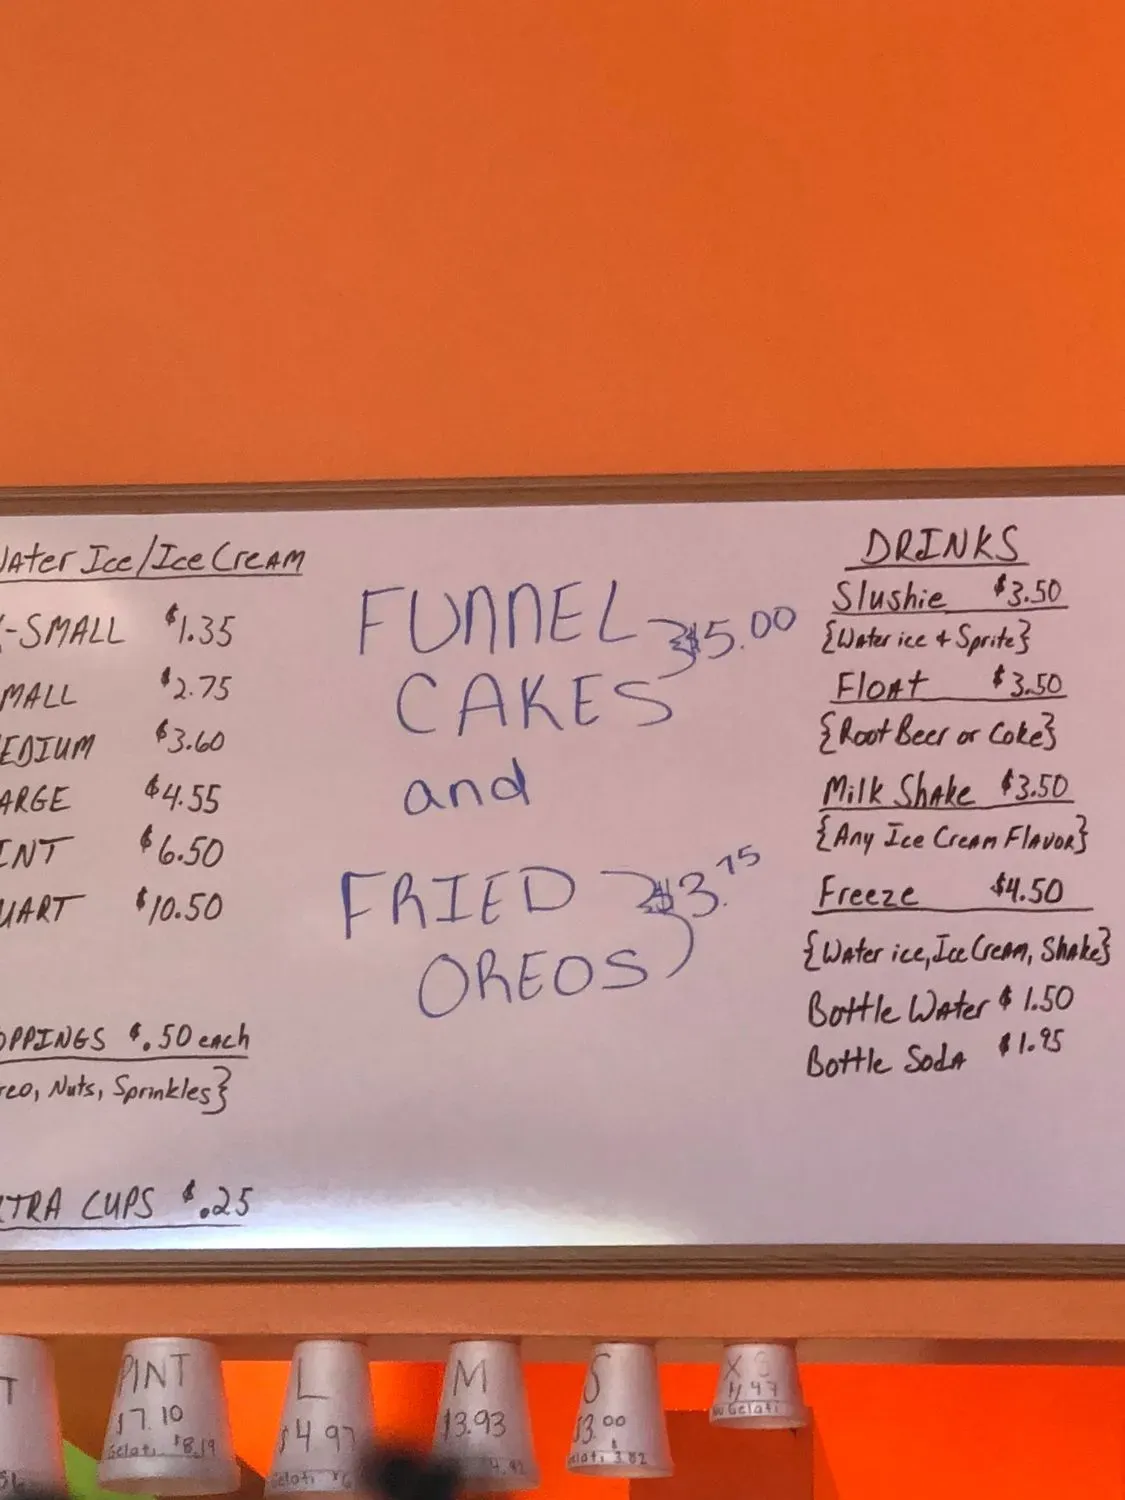 Water Ice/Ice Cream
X-SMALL $1.35
SMALL $2.75
MEDIUM $3.60
LARGE $4.55
PINT $6.50
QUART $10.50
TOPPINGS $.50 each
Oreo, Nuts, Sprinkles}
EXTRA CUPS $.25
FUNNEL
CAKES $5.00
and
FRIED
OREOS $3.75
DRINKS
Slushie $3.50
{Water ice + Sprite}
Float $3.50
{Root Beer or Coke}
Milk Shake $3.50
{Any Ice Cream Flavor}
Freeze $4.50
{Water ice, Ice Cream, Shake}
Bottle Water $1.50
Bottle Soda $1.95
T
PINT
$7.10
Gelati $8.19
L
$4.97
Gelati
M
$3.93
4.92
S
$3.00
Gelati 3.82
XS
No Gelati